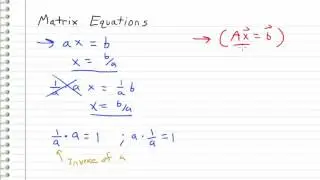 Matrix Equations
→ ax = b
x = b/a
1/a a x = 1/a b
x = b/a
1/a · a = 1 ; a · 1/a = 1
Inverse of a
→ (Ax⃗ = b⃗)